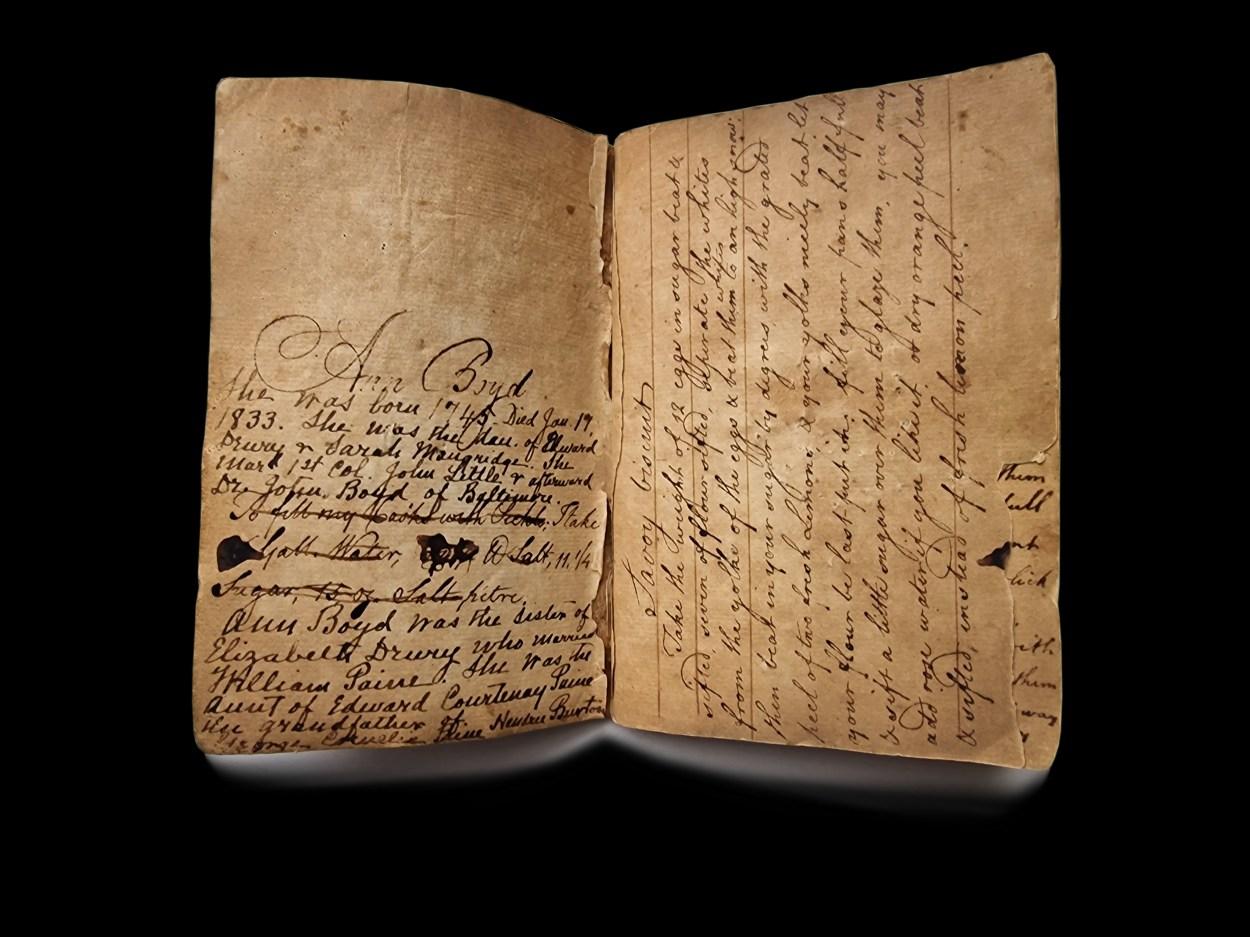 Ann Boyd
She was born 1745. Died Jan. 19,
1833. She was the dau. of Edward
Drury & Sarah Maugridge. She
Mard 1st Col. John Little & afterward
Dr. John Boyd of Baltimore.
To fill my Casks with Pickle. Take
Gall. Water, lb Salt, 11. 1/4
Sugar, 15 oz. Salt pitre.
Ann Boyd was the sister of
Elizabeth Drury who married
William Paine. She was the
aunt of Edward Courtenay Paine
the grandfather of
George Cornelia Paine Hendree Burton
Savoy biscuit
Take the weight of 12 eggs in sugar beat &
sifted seven of flour sifted, separate the whites
from the yolks of the eggs & beat them whites to an high snow.
then beat in your sugar by degrees with the grated
peel of two fresh Lemons & your yolks nicely beat let
your flour be last put in: fill your pans half full
& sift a little sugar over them to glaze them. you may
add rose water if you like it or dry orange peel beat
& sifted, instead of fresh lemon peel.
them
full
lick
with
them
way